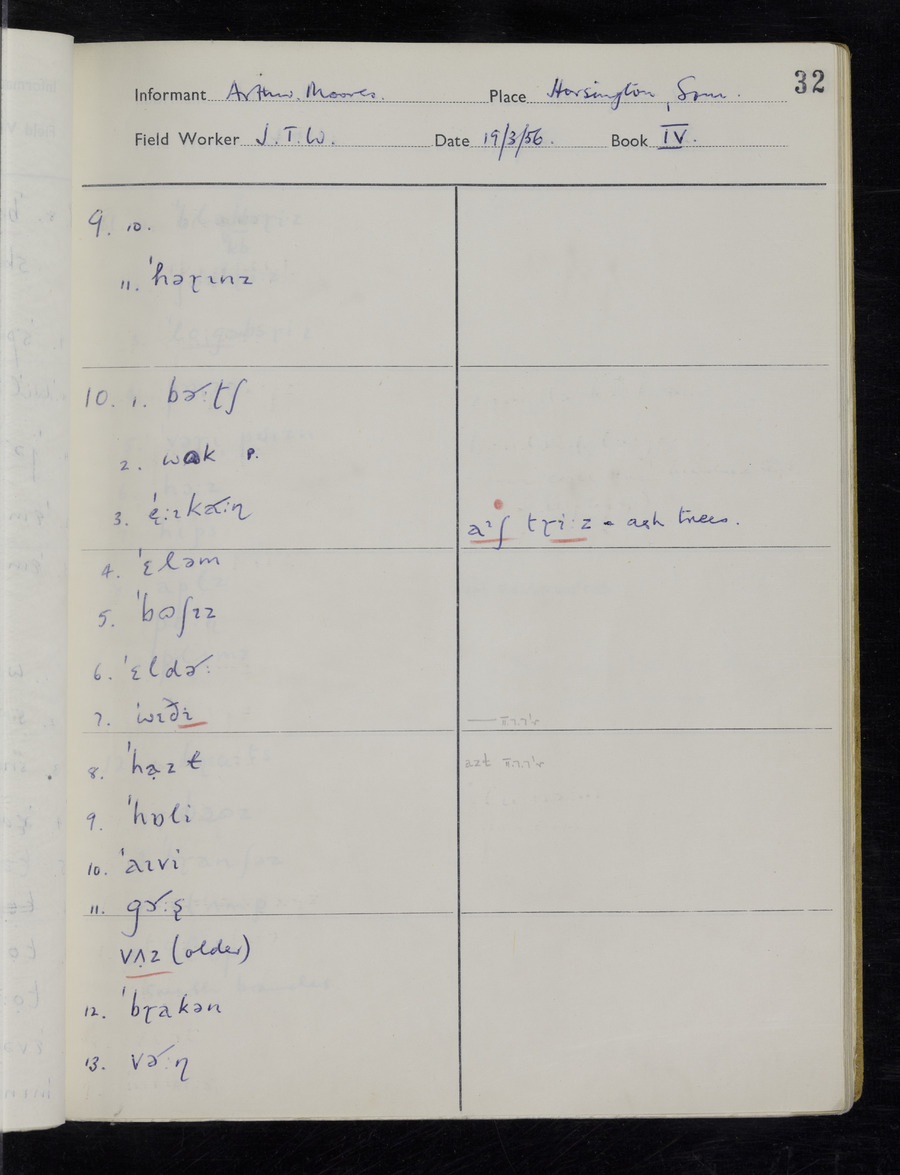 32
Informant Arthur. Moores. Place Horsington, Som.
Field Worker J.T.W. Date 19/3/56. Book IV.
9. 10.
11. ˈhəɽɪnz
10. 1. bəʴ:tʃ
2. wɷk P.
3. ˈɛ̨:ɪkaʴ:ɳ
aɪʃ tɽi:z - ash trees.
4. ˈɛləm
5. ˈbɷʃɪz
6. ˈɛldəʴ:
7. ˈwɪðɪ
8. ˈhạzɫ
azɫ
9. ˈhɒli
10. ˈaɪvi
11. gəʴ:ʂ
vʌ̣z (older)
12. ˈbɽakən
13. vəʴ:ɳ